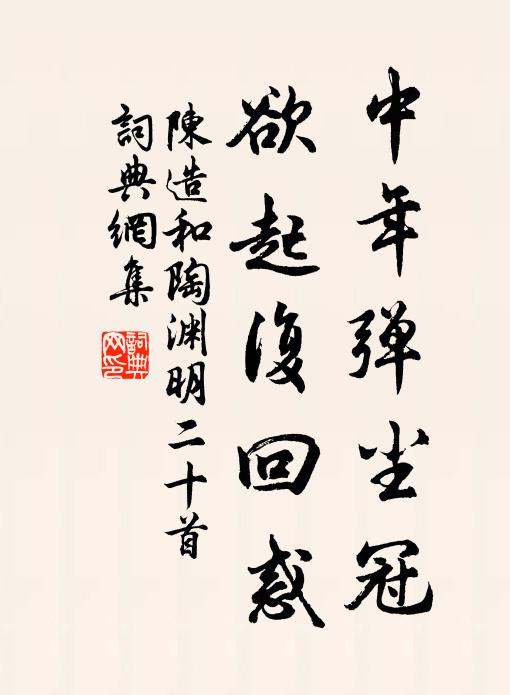 中年弹尘冠
欲起復回惑
陳造和陶淵明二十首
詞典網集
詞典網印